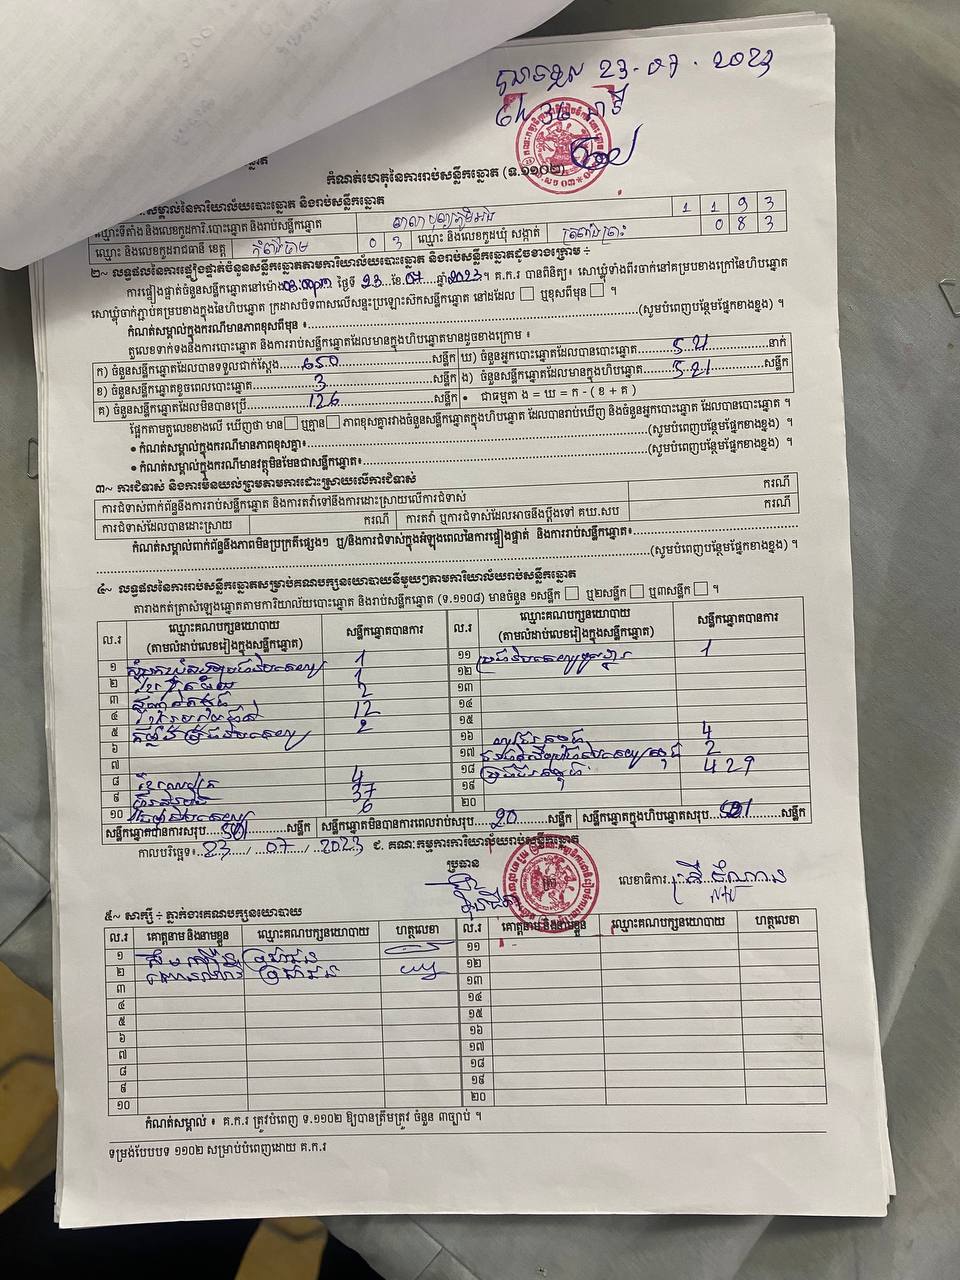 23-07-2023
កំណត់ហេតុនៃការរាប់សន្លឹកឆ្នោត (ទ.១១០២)
សម្គាល់នៃការិយាល័យបោះឆ្នោត និងរាប់សន្លឹកឆ្នោត
ឈ្មោះទីតាំង និងលេខកូដការិ.បោះឆ្នោត និងរាប់សន្លឹកឆ្នោត 1 1 9 3
ឈ្មោះ និងលេខកូដរាជធានី ខេត្ត កំពង់ចាម 0 3 ឈ្មោះ និងលេខកូដឃុំ សង្កាត់ 0 8 3
២~ លទ្ធផលនៃការផ្ទៀងផ្ទាត់ចំនួនសន្លឹកឆ្នោតតាមការិយាល័យបោះឆ្នោត និងរាប់សន្លឹកឆ្នោតដូចខាងក្រោម ÷
ការផ្ទៀងផ្ទាត់ចំនួនសន្លឹកឆ្នោតនៅម៉ោង 03:00pm ថ្ងៃទី 23 ខែ 07 ឆ្នាំ 2023 ។ គ.ក.រ បានពិនិត្យ៖ សោឃ្លុំទាំងពីរចាក់នៅគម្របខាងក្រៅនៃហិបឆ្នោត
សោឃ្លុំចាក់ភ្ជាប់គម្របខាងក្នុងនៃហិបឆ្នោត ក្រដាសបិទពាសលើសន្ទះប្រឡោះសិកសន្លឹកឆ្នោត នៅដដែល ☐ ឬខុសពីមុន ☐ ។
កំណត់សម្គាល់ក្នុងករណីមានភាពខុសពីមុន ៖ (សូមបំពេញបន្ថែមផ្នែកខាងខ្នង) ។
តួលេខទាក់ទងនឹងការបោះឆ្នោត និងការរាប់សន្លឹកឆ្នោតដែលមានក្នុងហិបឆ្នោតមានដូចខាងក្រោម ៖
ក) ចំនួនសន្លឹកឆ្នោតដែលបានទទួលជាក់ស្តែង 650 សន្លឹក ឃ) ចំនួនអ្នកបោះឆ្នោតដែលបានបោះឆ្នោត 521 នាក់
ខ) ចំនួនសន្លឹកឆ្នោតខូចពេលបោះឆ្នោត 3 សន្លឹក ង) ចំនួនសន្លឹកឆ្នោតដែលមានក្នុងហិបឆ្នោត 521 សន្លឹក
គ) ចំនួនសន្លឹកឆ្នោតដែលមិនបានប្រើ 126 សន្លឹក • ជាធម្មតា ង = ឃ = ក - ( ខ + គ )
ផ្អែកតាមតួលេខខាងលើ ឃើញថា មាន ☐ ឬគ្មាន ☐ ភាពខុសគ្នារវាងចំនួនសន្លឹកឆ្នោតក្នុងហិបឆ្នោត ដែលបានរាប់ឃើញ និងចំនួនអ្នកបោះឆ្នោត ដែលបានបោះឆ្នោត ។
• កំណត់សម្គាល់ក្នុងករណីមានភាពខុសគ្នា៖ (សូមបំពេញបន្ថែមផ្នែកខាងខ្នង) ។
• កំណត់សម្គាល់ក្នុងករណីមានវត្ថុមិនមែនជាសន្លឹកឆ្នោត៖ (សូមបំពេញបន្ថែមផ្នែកខាងខ្នង) ។
៣~ ការជំទាស់ និងការមិនយល់ព្រមតាមការដោះស្រាយលើការជំទាស់
ការជំទាស់ពាក់ព័ន្ធនឹងការរាប់សន្លឹកឆ្នោត និងការតវ៉ាទៅនឹងការដោះស្រាយលើការជំទាស់ ករណី
ការជំទាស់ដែលបានដោះស្រាយ ករណី ការតវ៉ា ឬការជំទាស់ដែលអាចនឹងប្តឹងទៅ គឃ.សប ករណី
កំណត់សម្គាល់ពាក់ព័ន្ធនឹងភាពមិនប្រក្រតីផ្សេងៗ ឬ/និងការជំទាស់ក្នុងអំឡុងពេលនៃការផ្ទៀងផ្ទាត់ និងការរាប់សន្លឹកឆ្នោត៖
(សូមបំពេញបន្ថែមផ្នែកខាងខ្នង) ។
៤~ លទ្ធផលនៃការរាប់សន្លឹកឆ្នោតសម្រាប់គណបក្សនយោបាយនីមួយៗតាមការិយាល័យរាប់សន្លឹកឆ្នោត
តារាងកត់ត្រាសំឡេងឆ្នោតតាមការិយាល័យបោះឆ្នោត និងរាប់សន្លឹកឆ្នោត (ទ.១១០៨) មានចំនួន ១សន្លឹក ☐ ឬ២សន្លឹក ☐ ឬ៣សន្លឹក ☐ ។
ល.រ ឈ្មោះគណបក្សនយោបាយ (តាមលំដាប់លេខរៀងក្នុងសន្លឹកឆ្នោត) សន្លឹកឆ្នោតបានការ ល.រ ឈ្មោះគណបក្សនយោបាយ (តាមលំដាប់លេខរៀងក្នុងសន្លឹកឆ្នោត) សន្លឹកឆ្នោតបានការ
១ 1 ១១ 1
២ 1 ១២
៣ 2 ១៣
៤ 12 ១៤
៥ 2 ១៥
៦ ១៦ 4
៧ ១៧ 2
៨ 4 ១៨ 429
៩ 37 ១៩
១០ 6 ២០
សន្លឹកឆ្នោតបានការសរុប 501 សន្លឹក សន្លឹកឆ្នោតមិនបានការពេលរាប់សរុប 20 សន្លឹក សន្លឹកឆ្នោតក្នុងហិបឆ្នោតសរុប 521 សន្លឹក
កាលបរិច្ឆេទ៖ 23 / 07 / 2023 ជ. គណៈកម្មការការិយាល័យរាប់សន្លឹកឆ្នោត
ប្រធាន
លេខាធិការ
៥~ សាក្សី ÷ ភ្នាក់ងារគណបក្សនយោបាយ
ល.រ គោត្តនាម និងនាមខ្លួន ឈ្មោះគណបក្សនយោបាយ ហត្ថលេខា ល.រ គោត្តនាម និងនាមខ្លួន ឈ្មោះគណបក្សនយោបាយ ហត្ថលេខា
១ ប្រជាជន ១១
២ ប្រជាជន ១២
៣ ១៣
៤ ១៤
៥ ១៥
៦ ១៦
៧ ១៧
៨ ១៨
៩ ១៩
១០ ២០
កំណត់សម្គាល់ ៖ គ.ក.រ ត្រូវបំពេញ ទ.១១០២ ឱ្យបានត្រឹមត្រូវ ចំនួន ៣ច្បាប់ ។
ទម្រង់បែបបទ ១១០២ សម្រាប់បំពេញដោយ គ.ក.រ